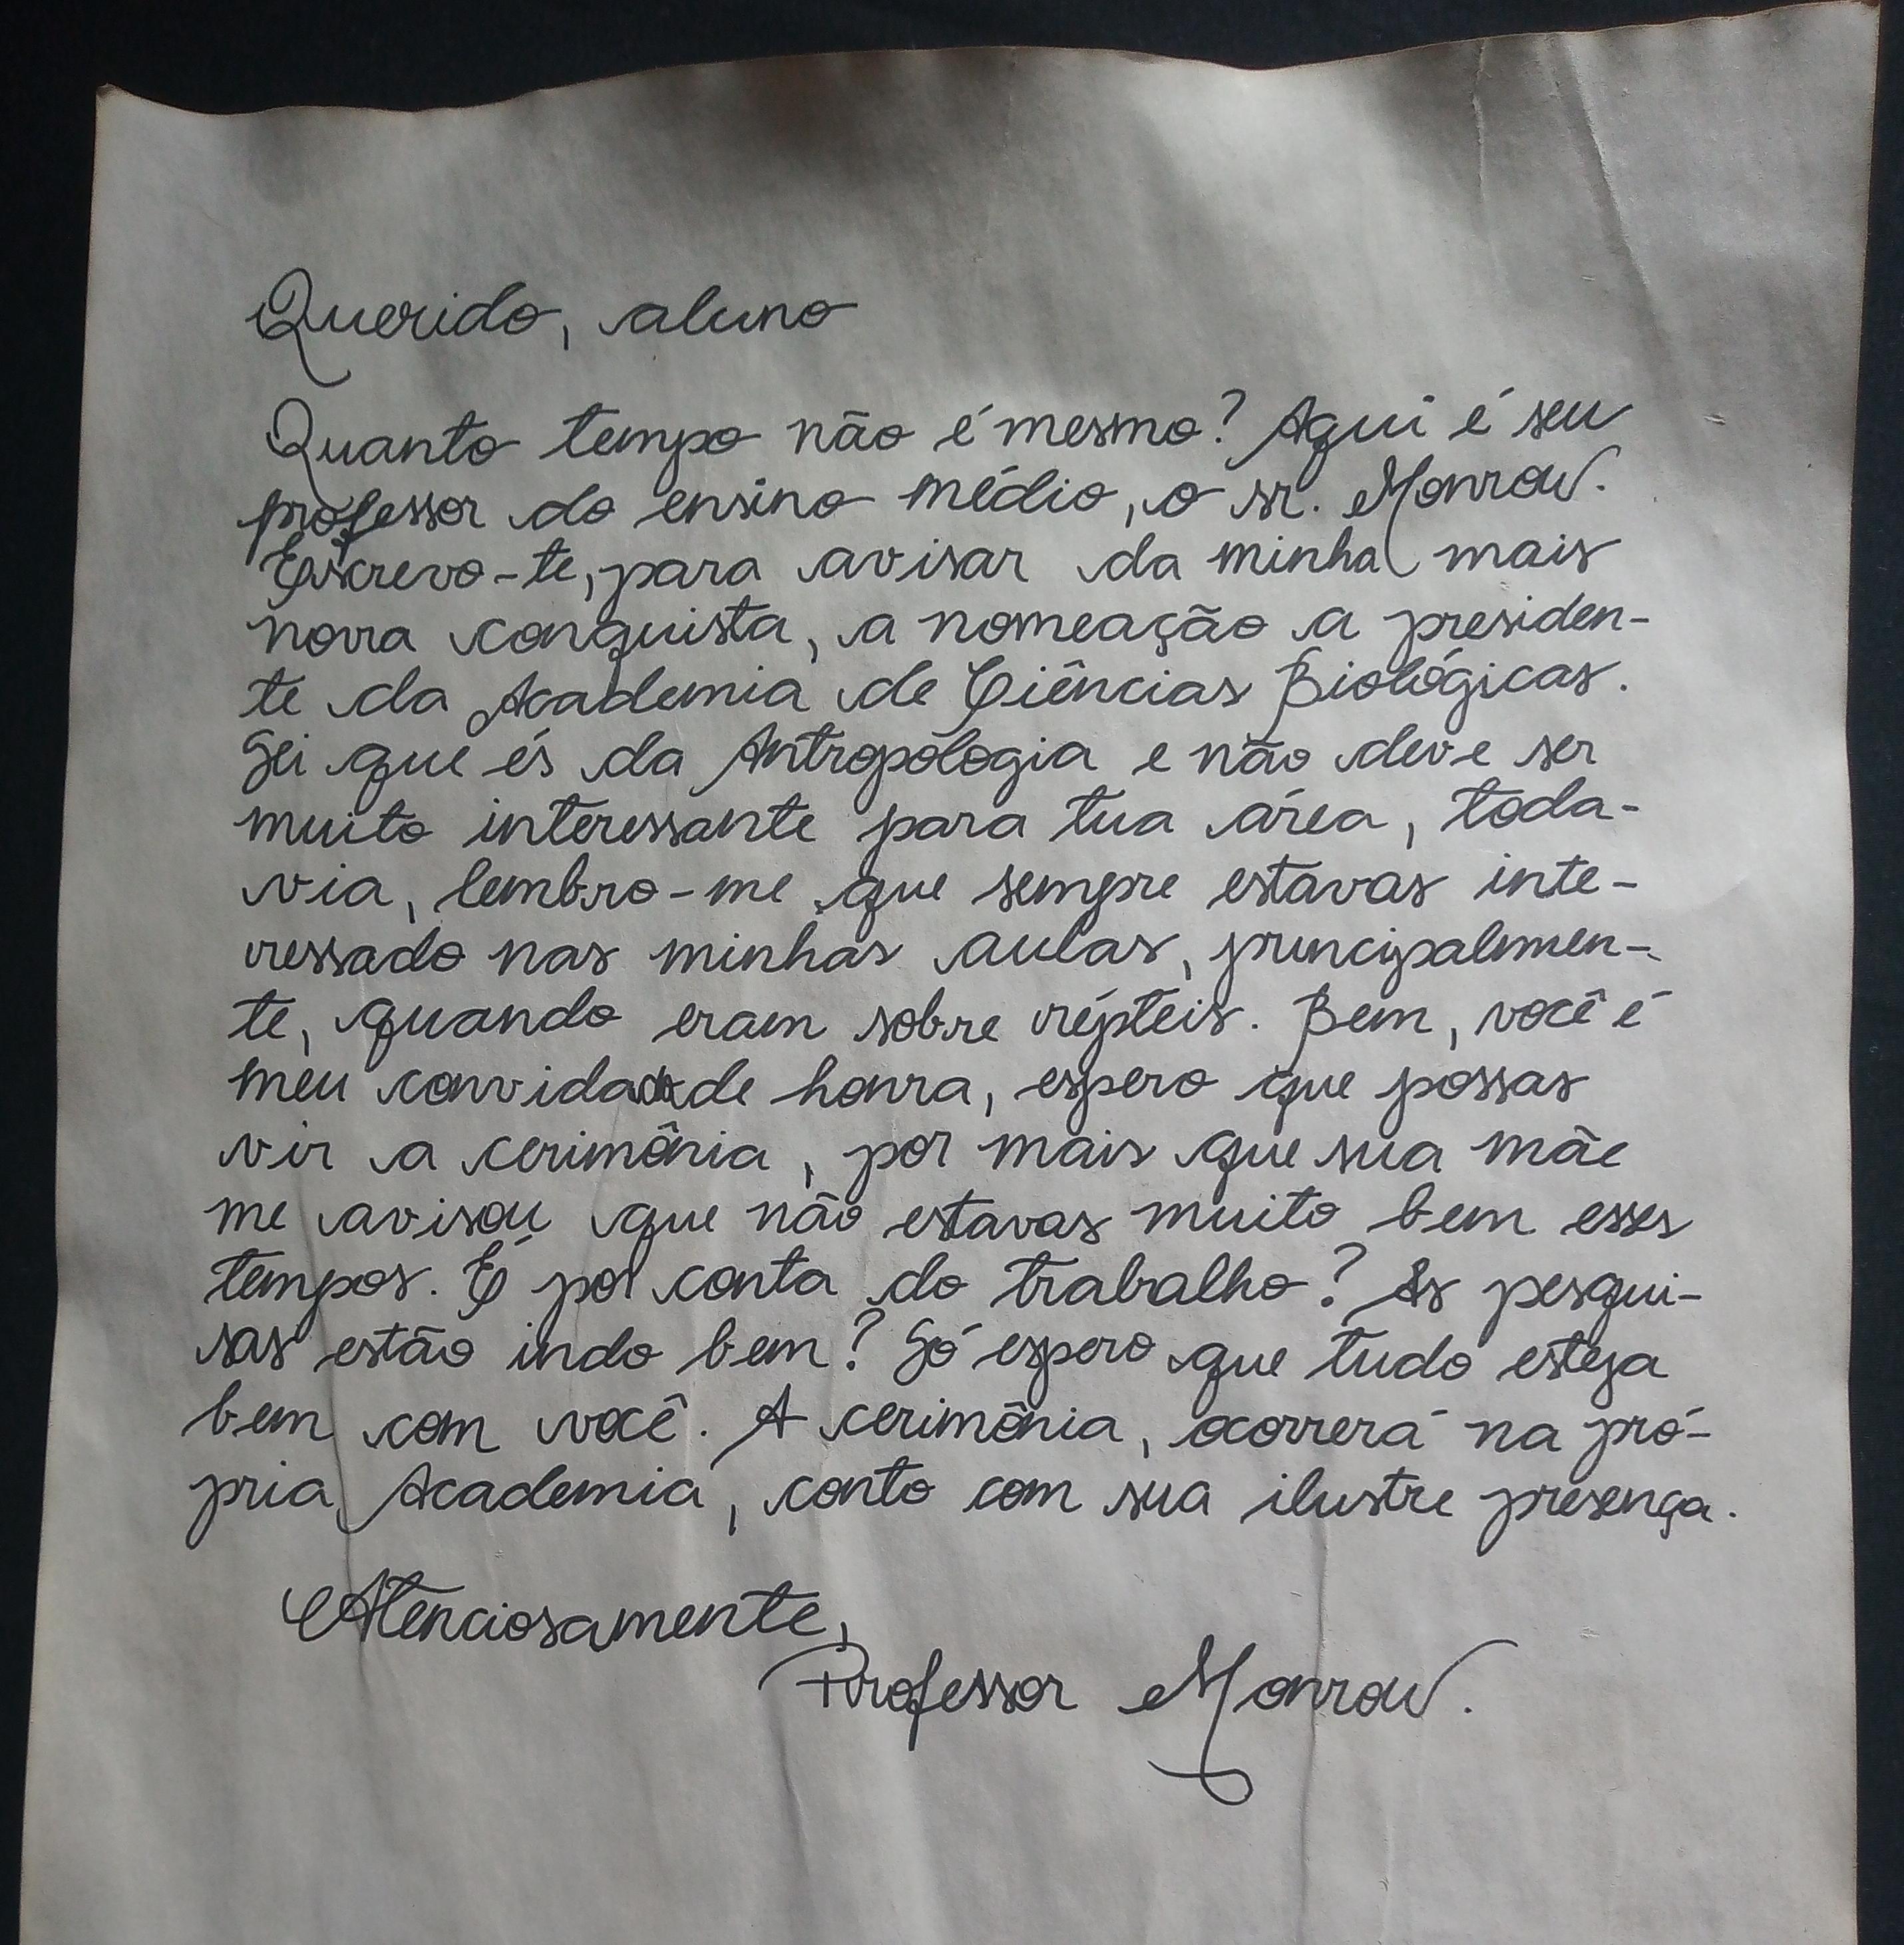 Querido, aluno
Quanto tempo não é mesmo? Aqui é seu
professor do ensino médio, o sr. Monrow.
Escrevo-te, para avisar da minha mais
nova conquista, a nomeação a presiden-
te da Academia de Ciências Biológicas.
Sei que és da Antropologia e não deve ser
muito interessante para tua área, toda-
via, lembro-me que sempre estavas inte-
ressado nas minhas aulas, principalmen-
te, quando eram sobre répteis. Bem, você é
meu convidado de honra, espero que possas
vir a cerimônia, por mais que sua mãe
me avisou que não estavas muito bem esses
tempos. É por conta do trabalho? As pesqui-
sas estão indo bem? Só espero que tudo esteja
bem com você. A cerimônia, ocorrerá na pró-
pria Academia, conto com sua ilustre presença.
Atenciosamente,
Professor Monrow.